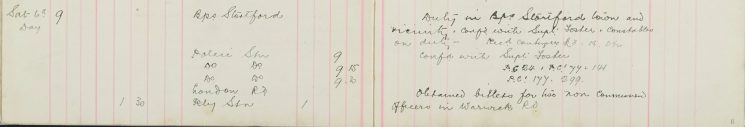 Sat 6th 9 Bps Stortford Duty in Bps Stortford town and
Day vicinity, confd with Supt Foster & Constables
on duty.
Police Stn 9 confd with Supt Foster
do do 9 15 P.C 24 & P.C. 77 & 141
do do 9.30 P.C. 177. 299.
London Rd Obtained billets for two non commissioned
1 30 Rly Stn 1 officers in Warwick Rd